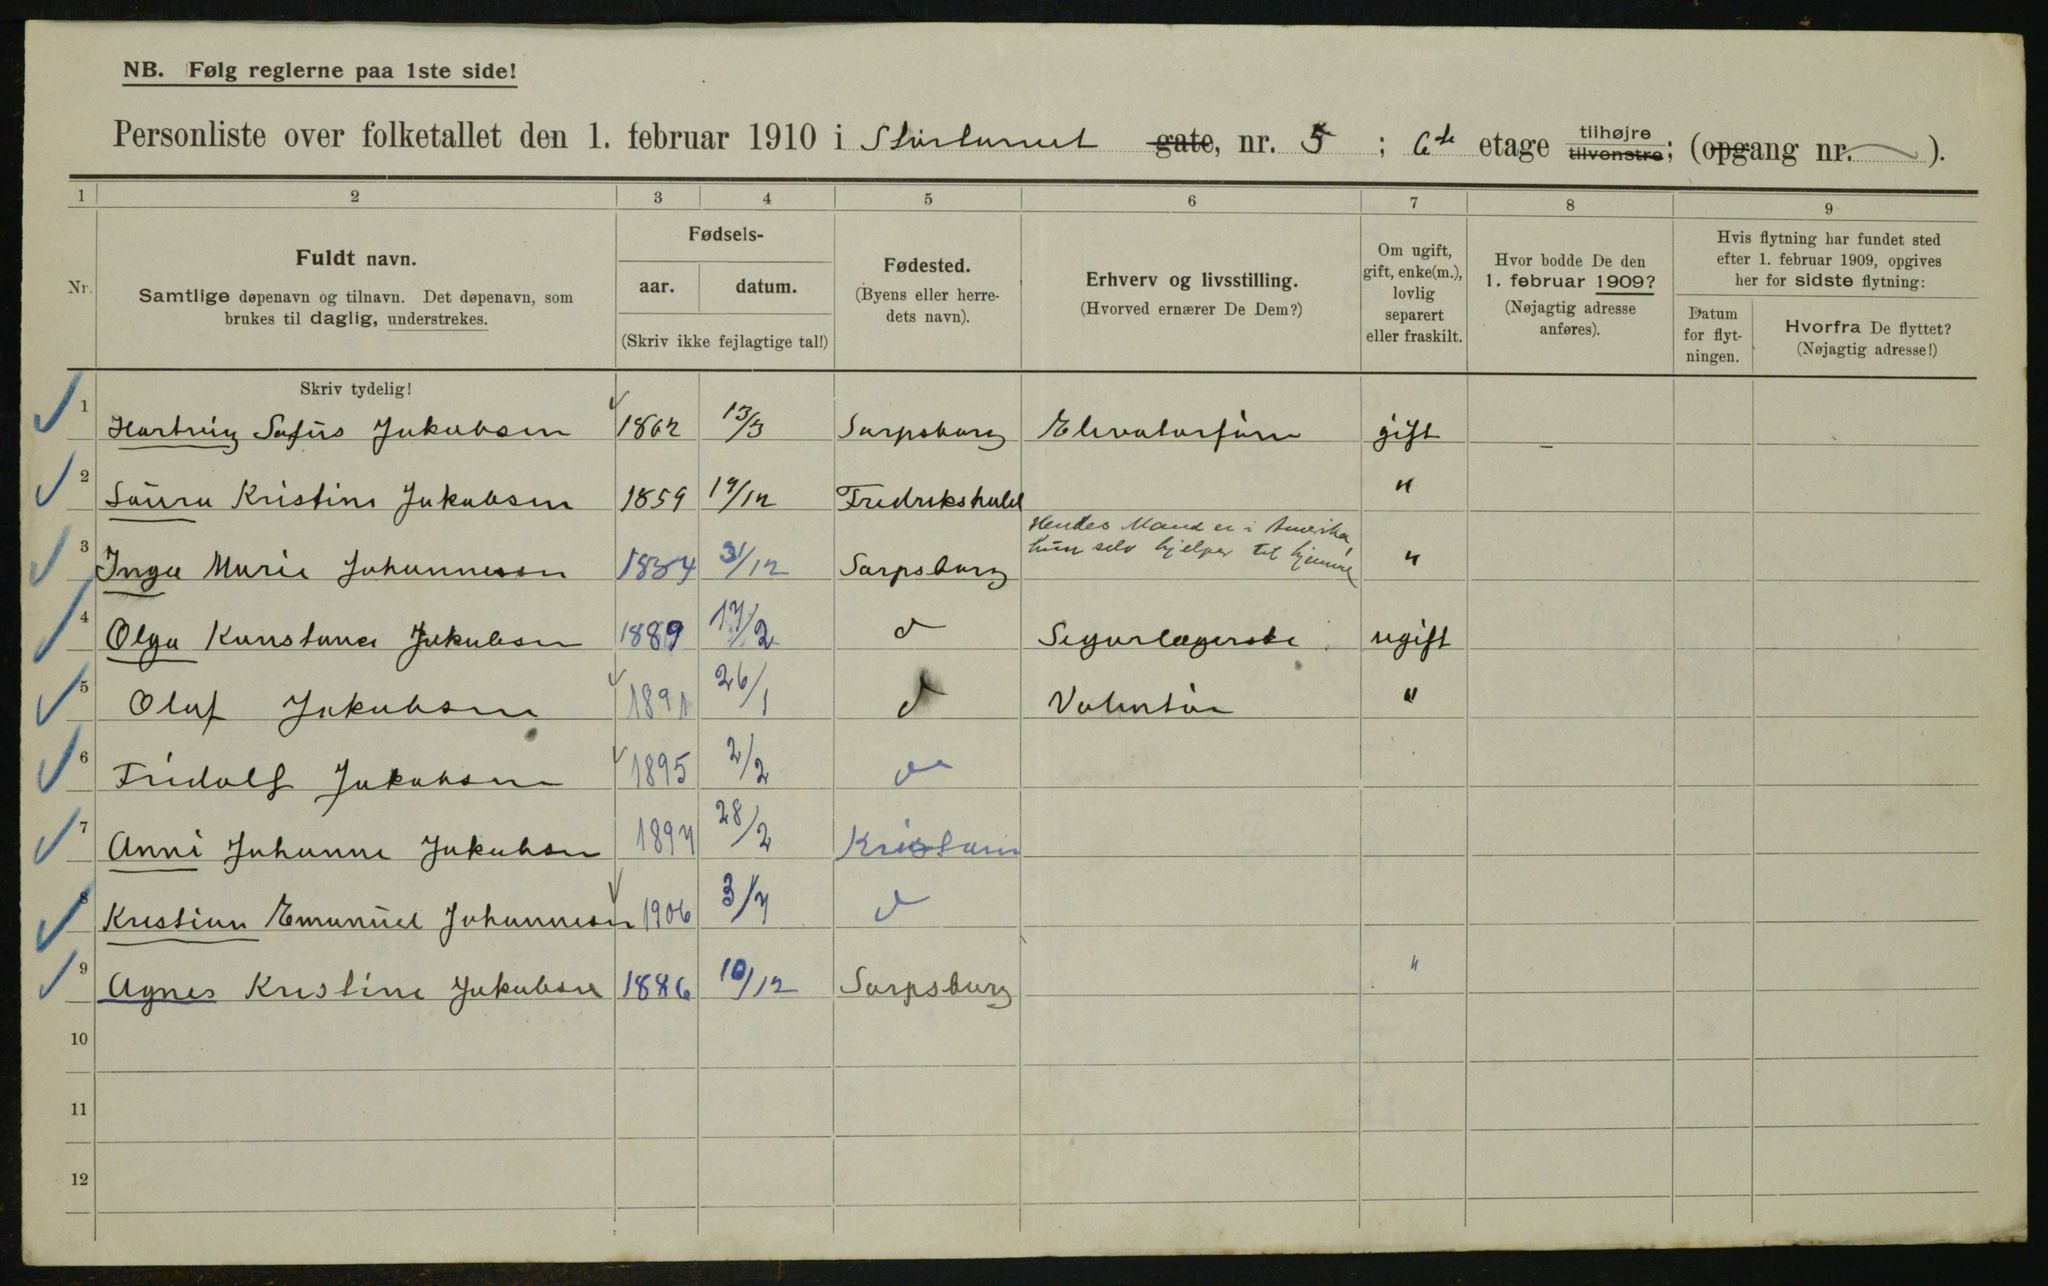 NB. Følg reglerne paa 1ste side!
Personliste over folketallet den 1. februar 1910 i Stortorvet gate, nr. 5; 6te etage tilhøjre tilvenstre; (opgang nr. ).
1 2 3 4 5 6 7 8 9
Nr.
Fuldt navn.
Samtlige døpenavn og tilnavn. Det døpenavn, som
brukes til daglig, understrekes.
Fødsels-
aar. datum.
(Skriv ikke fejlagtige tal!)
Fødested.
(Byens eller herre-
dets navn).
Erhverv og livsstilling.
(Hvorved ernærer De Dem?)
Om ugift,
gift, enke(m.),
lovlig
separert
eller fraskilt.
Hvor bodde De den
1. februar 1909?
(Nøjagtig adresse
anføres).
Hvis flytning har fundet sted
efter 1. februar 1909, opgives
her for sidste flytning:
Datum
for flyt-
ningen.
Hvorfra De flyttet?
(Nøjagtig adresse!)
Skriv tydelig!
1 Hartvig Sofus Jakobsen 1862 13/3 Sarpsborg Elevatorfører gift –
2 Laura Kristine Jakobsen 1859 19/12 Fredrikshald "
3 Inga Marie Johannesen 1884 31/12 Sarpsborg Hendes Mand er i Amerika,
hun selv hjelper til hjemme "
4 Olga Konstance Jakobsen 1889 17/2 d Sigarlægerske ugift
5 Olaf Jakobsen 1891 26/1 d Volontør "
6 Fridolf Jakobsen 1895 2/2 d
7 Anni Johanne Jakobsen 1897 28/2 Kristiania
8 Kristian Emanuel Johannesen 1906 3/7 d
9 Agnes Kristine Jakobsen 1886 10/12 Sarpsborg "
10
11
12